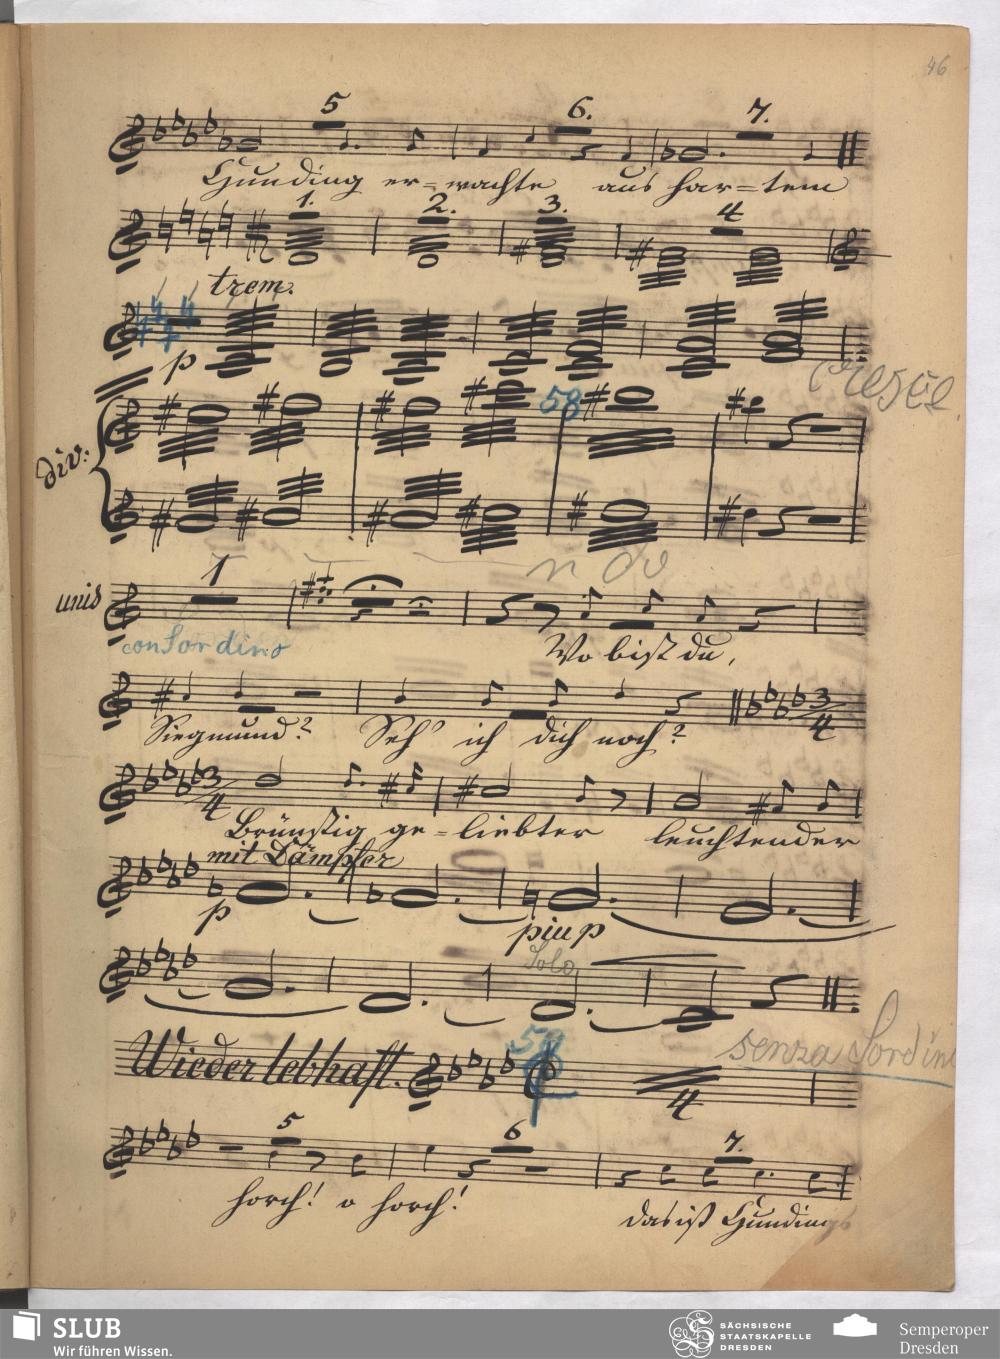 46
5 6. 7.
Hunding er=wachte aus har=tem
1. 2. 3. 4
trem.
p
cresce
58
div:
n do
unis
1
con Sordino
Wo bist du,
Siegmund? Seh' ich dich noch?
3/4
3/4
Brünstig ge=liebter leuchtender
mit Dämpfer
p
piu p
Solo
59
senza Sordini
Wieder lebhaft.
4
5 6 7.
horch! o horch! das ist Hundings
SLUB
Wir führen Wissen.
SÄCHSISCHE
STAATSKAPELLE
DRESDEN
Semperoper
Dresden